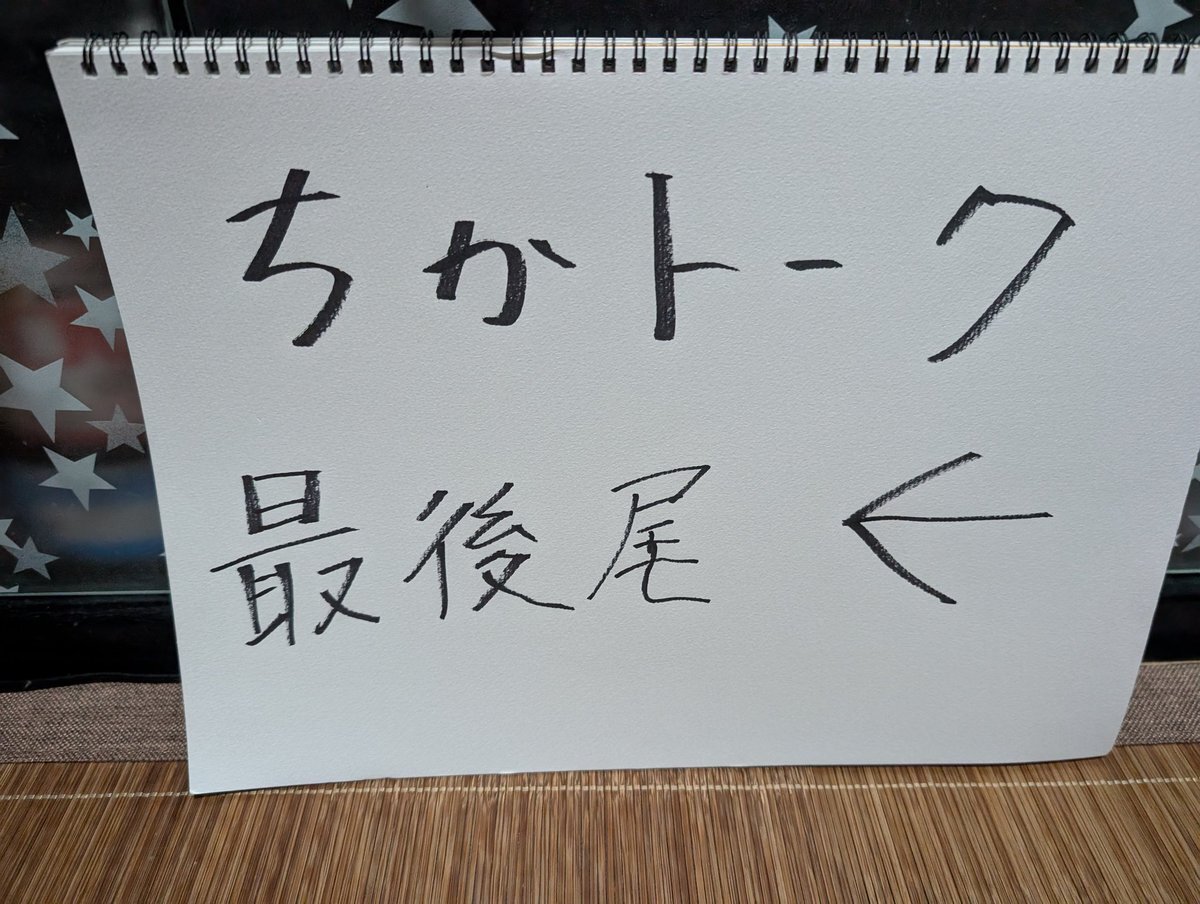 ちかトーク
最後尾 ←